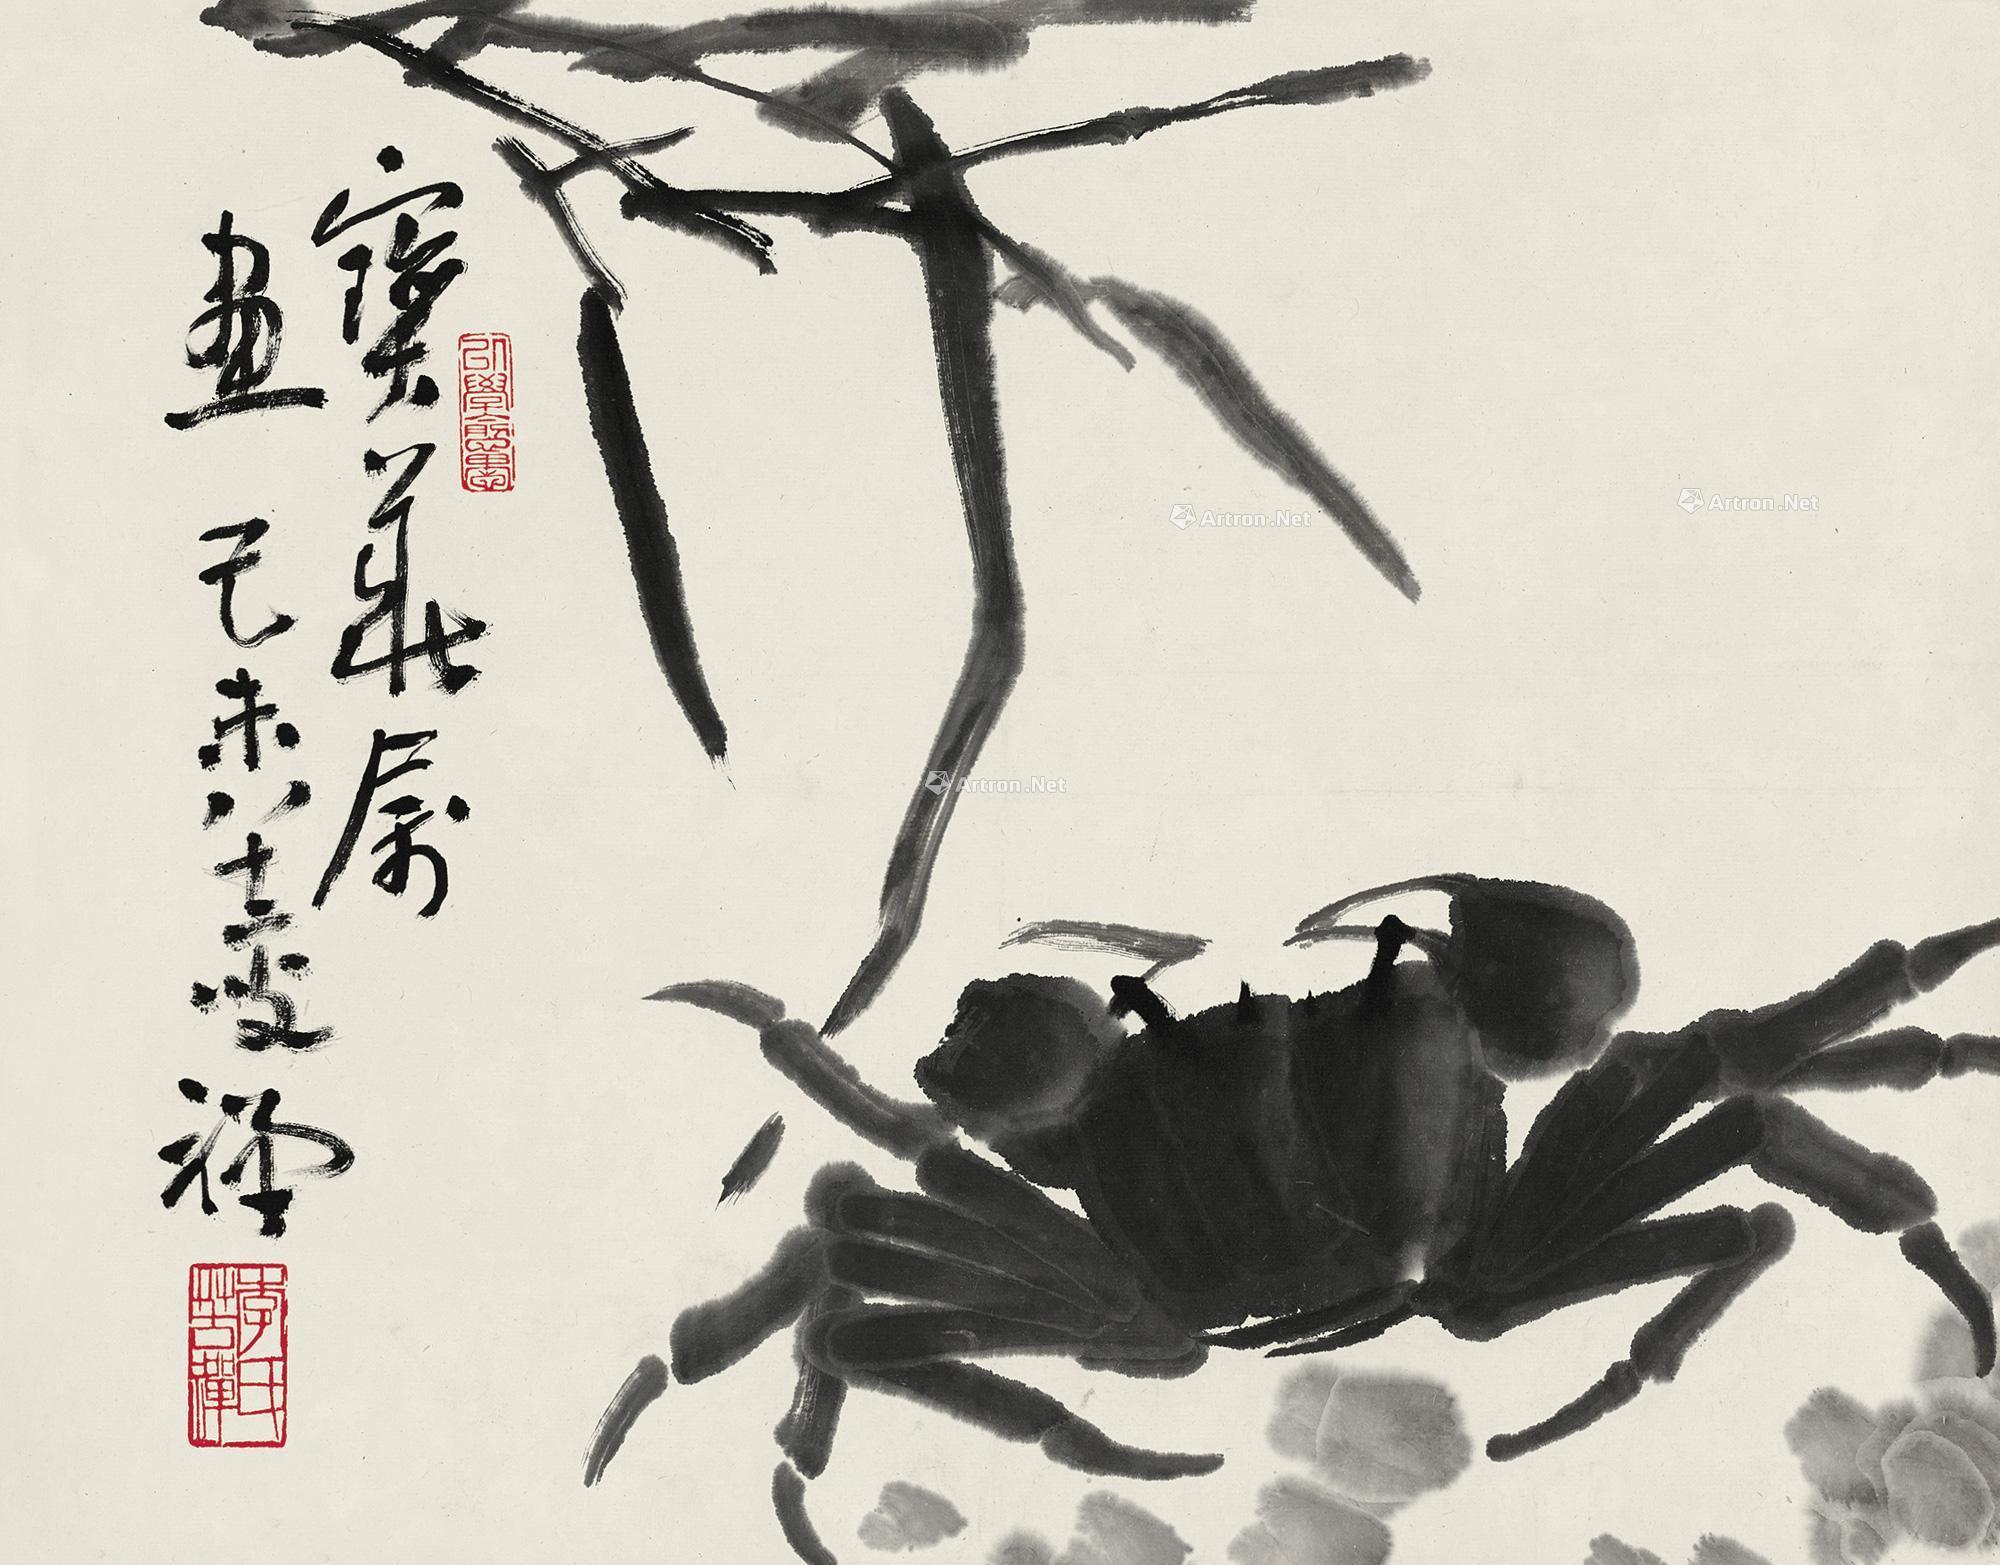 寶莊屬
画 己未八十二叟
禪
李氏
苦禪
Artron.Net
Artron.Net
Artron.Net